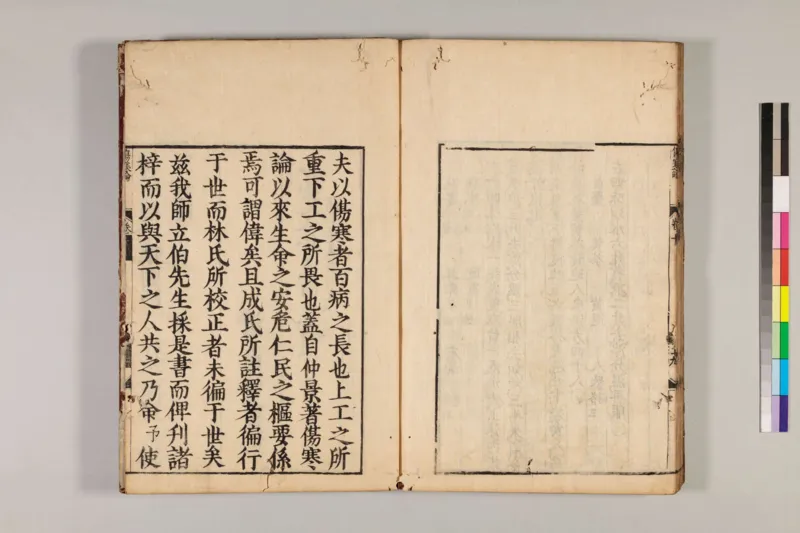 夫以傷寒者百病之長也上工之所
重下工之所畏也蓋自仲景著傷寒
論以來生命之安危仁民之樞要係
焉可謂偉矣且成氏所註釋者徧行
于世而林氏所校正者未徧于世矣
茲我師立伯先生採是書而俾刋諸
梓而以與天下之人共之乃命予使